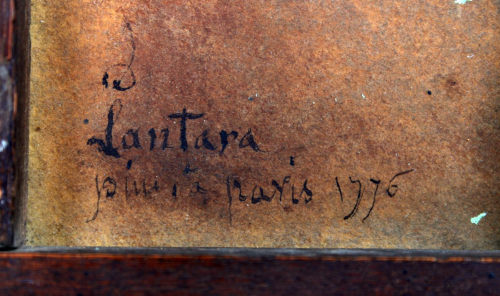 3
Lantara
pinx à paris 1776